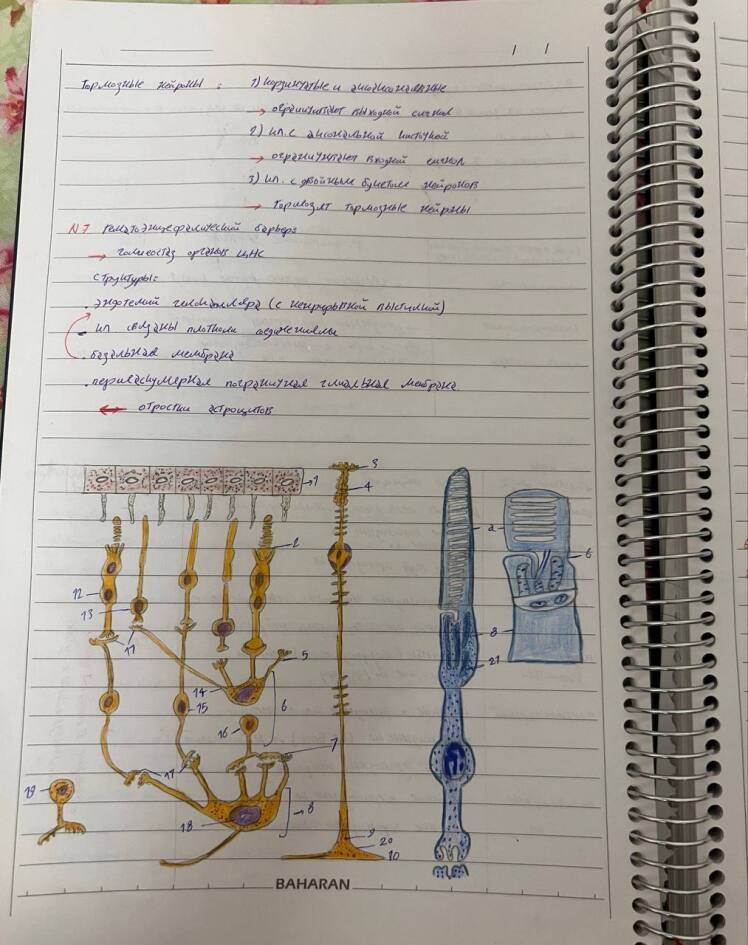 Тормозные нейроны: 1) корзинчатые и аксоаксональные
→ ограничивают выходной сигнал
2) кл. с аксональной кисточкой
→ ограничивают входной сигнал
3) кл. с двойным букетом нейронов
→ тормозят тормозные нейроны
N7 гематоэнцефалический барьер
→ гомеостаз органов ЦНС
структуры:
. эндотелий гемокапилляра (с непрерывной выстилкой)
- кл. связаны плотными соединениями
. базальная мембрана
. периваскулярная пограничная глиальная мембрана
← отростки астроцитов
1
3
4
2
a
б
12
13
11
8
5
21
14
6
15
16
7
17
19
8
18
9
20
10
BAHARAN